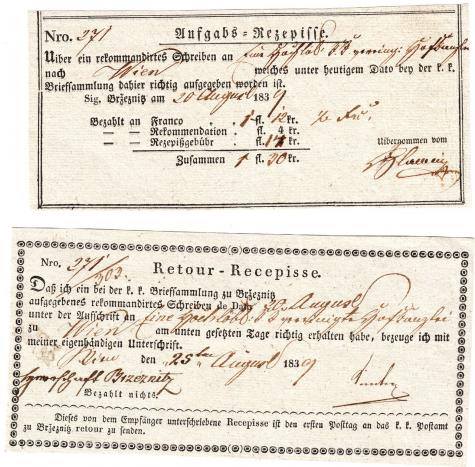 Nro. 271 Aufgabs-Rezepisse.
Uiber ein rekommandirtes Schreiben an Eine Hochlöb. k.k. vereinig. Hofkanzlei
nach Wien welches unter heutigem Dato bey der k. k.
Briefsammlung dahier richtig aufgegeben worden ist.
Sig. Bržeznitz am 20 August 1839
Bezahlt an Franco 1 fl. 12 kr.
— — Rekommendation . fl. 4 kr.
— — Rezepißgebühr . fl. 14 kr.
Uibernommen vom
Zusammen 1 fl. 30 kr.
Nro. 271/303. Retour-Recepisse.
Daß ich ein bei der k. k. Briefsammlung zu Bržeznitz
aufgegebenes rekommandirtes Schreiben de Dato 20 August
unter der Aufschrift an Eine k.k. vereinigte Hofkanzlei
zu Wien am unten gesetzten Tage richtig erhalten habe, bezeuge ich mit
meiner eigenhändigen Unterschrift.
Wien den 25ten August 1839
Herrschaft Bržeznitz
Bezahlt nichts.
Dieses von dem Empfänger unterschriebene Recepisse ist den ersten Posttag an das k. k. Postamt
zu Bržeznitz retour zu senden.